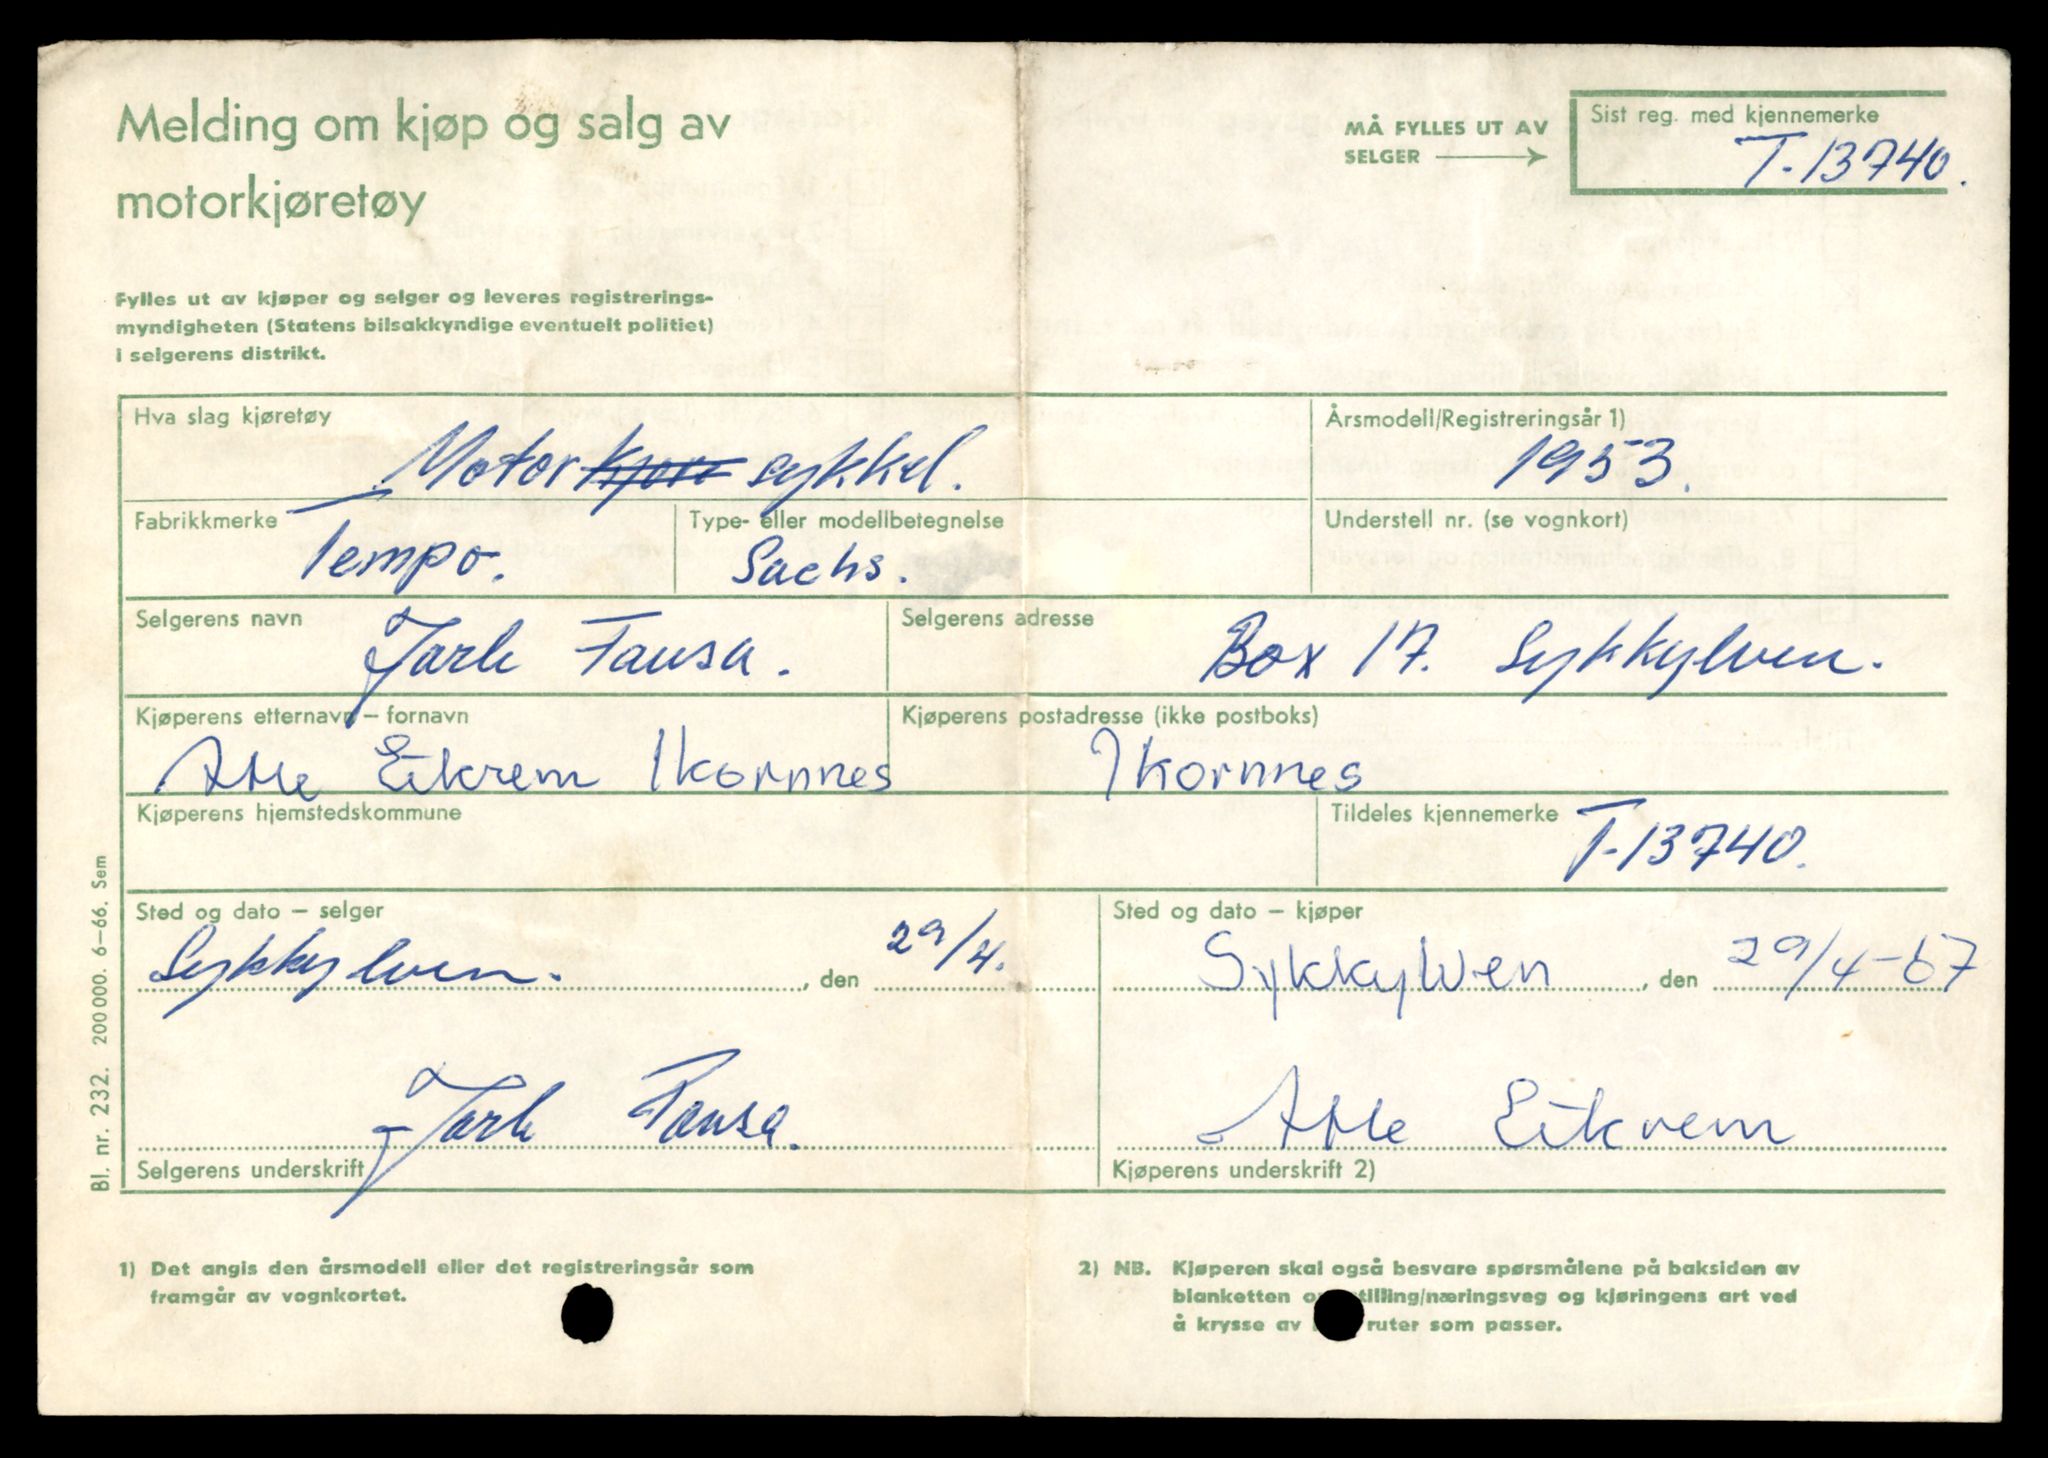 Melding om kjøp og salg av
motorkjøretøy
MÅ FYLLES UT AV
SELGER
Sist reg. med kjennemerke
T-13740.
Fylles ut av kjøper og selger og leveres registrerings-
myndigheten (Statens bilsakkyndige eventuelt politiet)
i selgerens distrikt.
Hva slag kjøretøy
Motor kjøre sykkel.
Årsmodell/Registreringsår 1)
1953.
Fabrikkmerke
Tempo.
Type- eller modellbetegnelse
Sachs.
Understell nr. (se vognkort)
Selgerens navn
Jarle Fausa.
Selgerens adresse
Box 17. Sykkylven.
Kjøperens etternavn – fornavn
Atle Eikrem Ikornnes
Kjøperens postadresse (ikke postboks)
Ikornnes
Kjøperens hjemstedskommune
Tildeles kjennemerke
T-13740.
Sted og dato – selger
Sykkylven. , den 29/4.
Sted og dato – kjøper
Sykkylven , den 29/4-67
Jarle Fausa.
Selgerens underskrift
Atle Eikrem
Kjøperens underskrift 2)
Bl. nr. 232. 200 000. 6–66. Sem
1) Det angis den årsmodell eller det registreringsår som
framgår av vognkortet.
2) NB. Kjøperen skal også besvare spørsmålene på baksiden av
blanketten o tilling/næringsveg og kjøringens art ved
å krysse av ruter som passer.